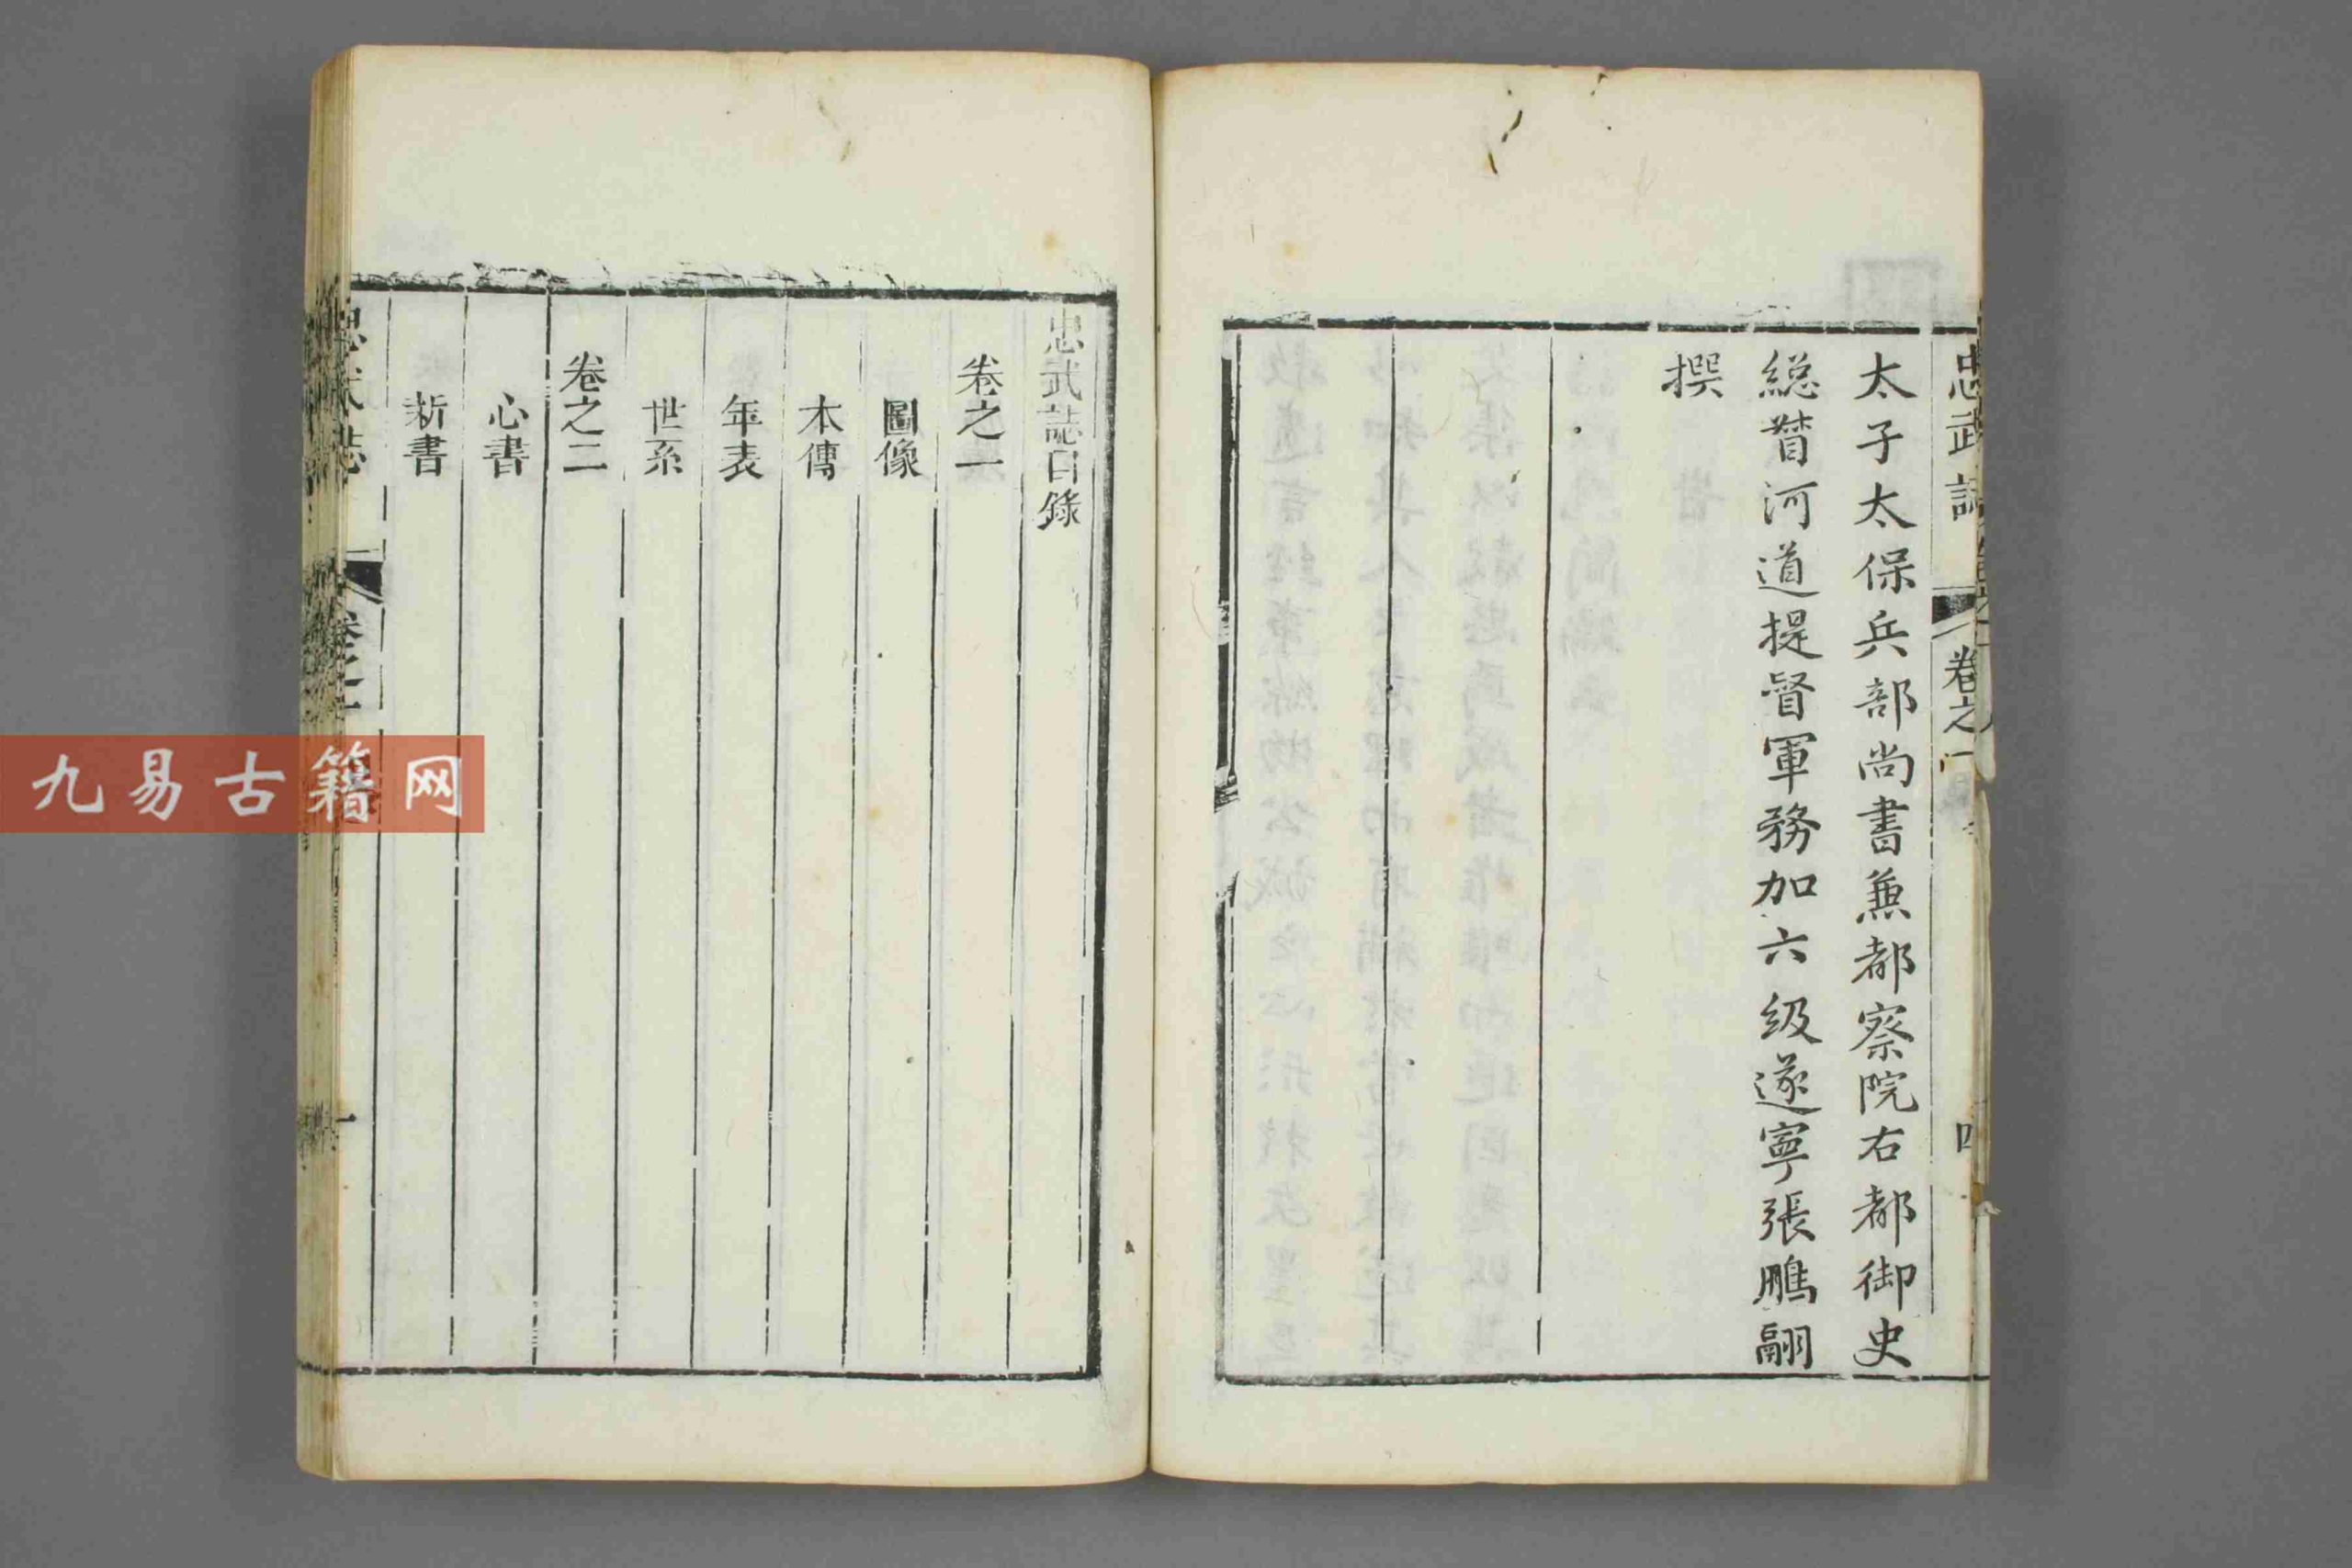 忠武誌
卷之一
四
太子太保兵部尚書兼都察院右都御史
総督河道提督軍務加六級遂寧張鵬翮
撰
忠武誌目錄
卷之一
圖像
本傳
年表
世系
卷之二
心書
新書
忠武誌
一
九易古籍网